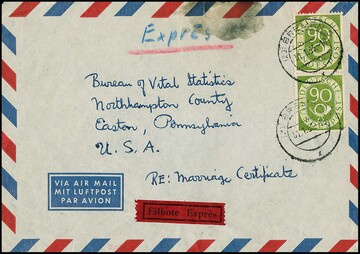 Exprés
90
90
Bureau of Vital Statistics
Northhampton County
Easton, Pennsylvania
U. S. A.
RE: Marriage Certificate
VIA AIR MAIL
MIT LUFTPOST
PAR AVION
Eilbote Exprès